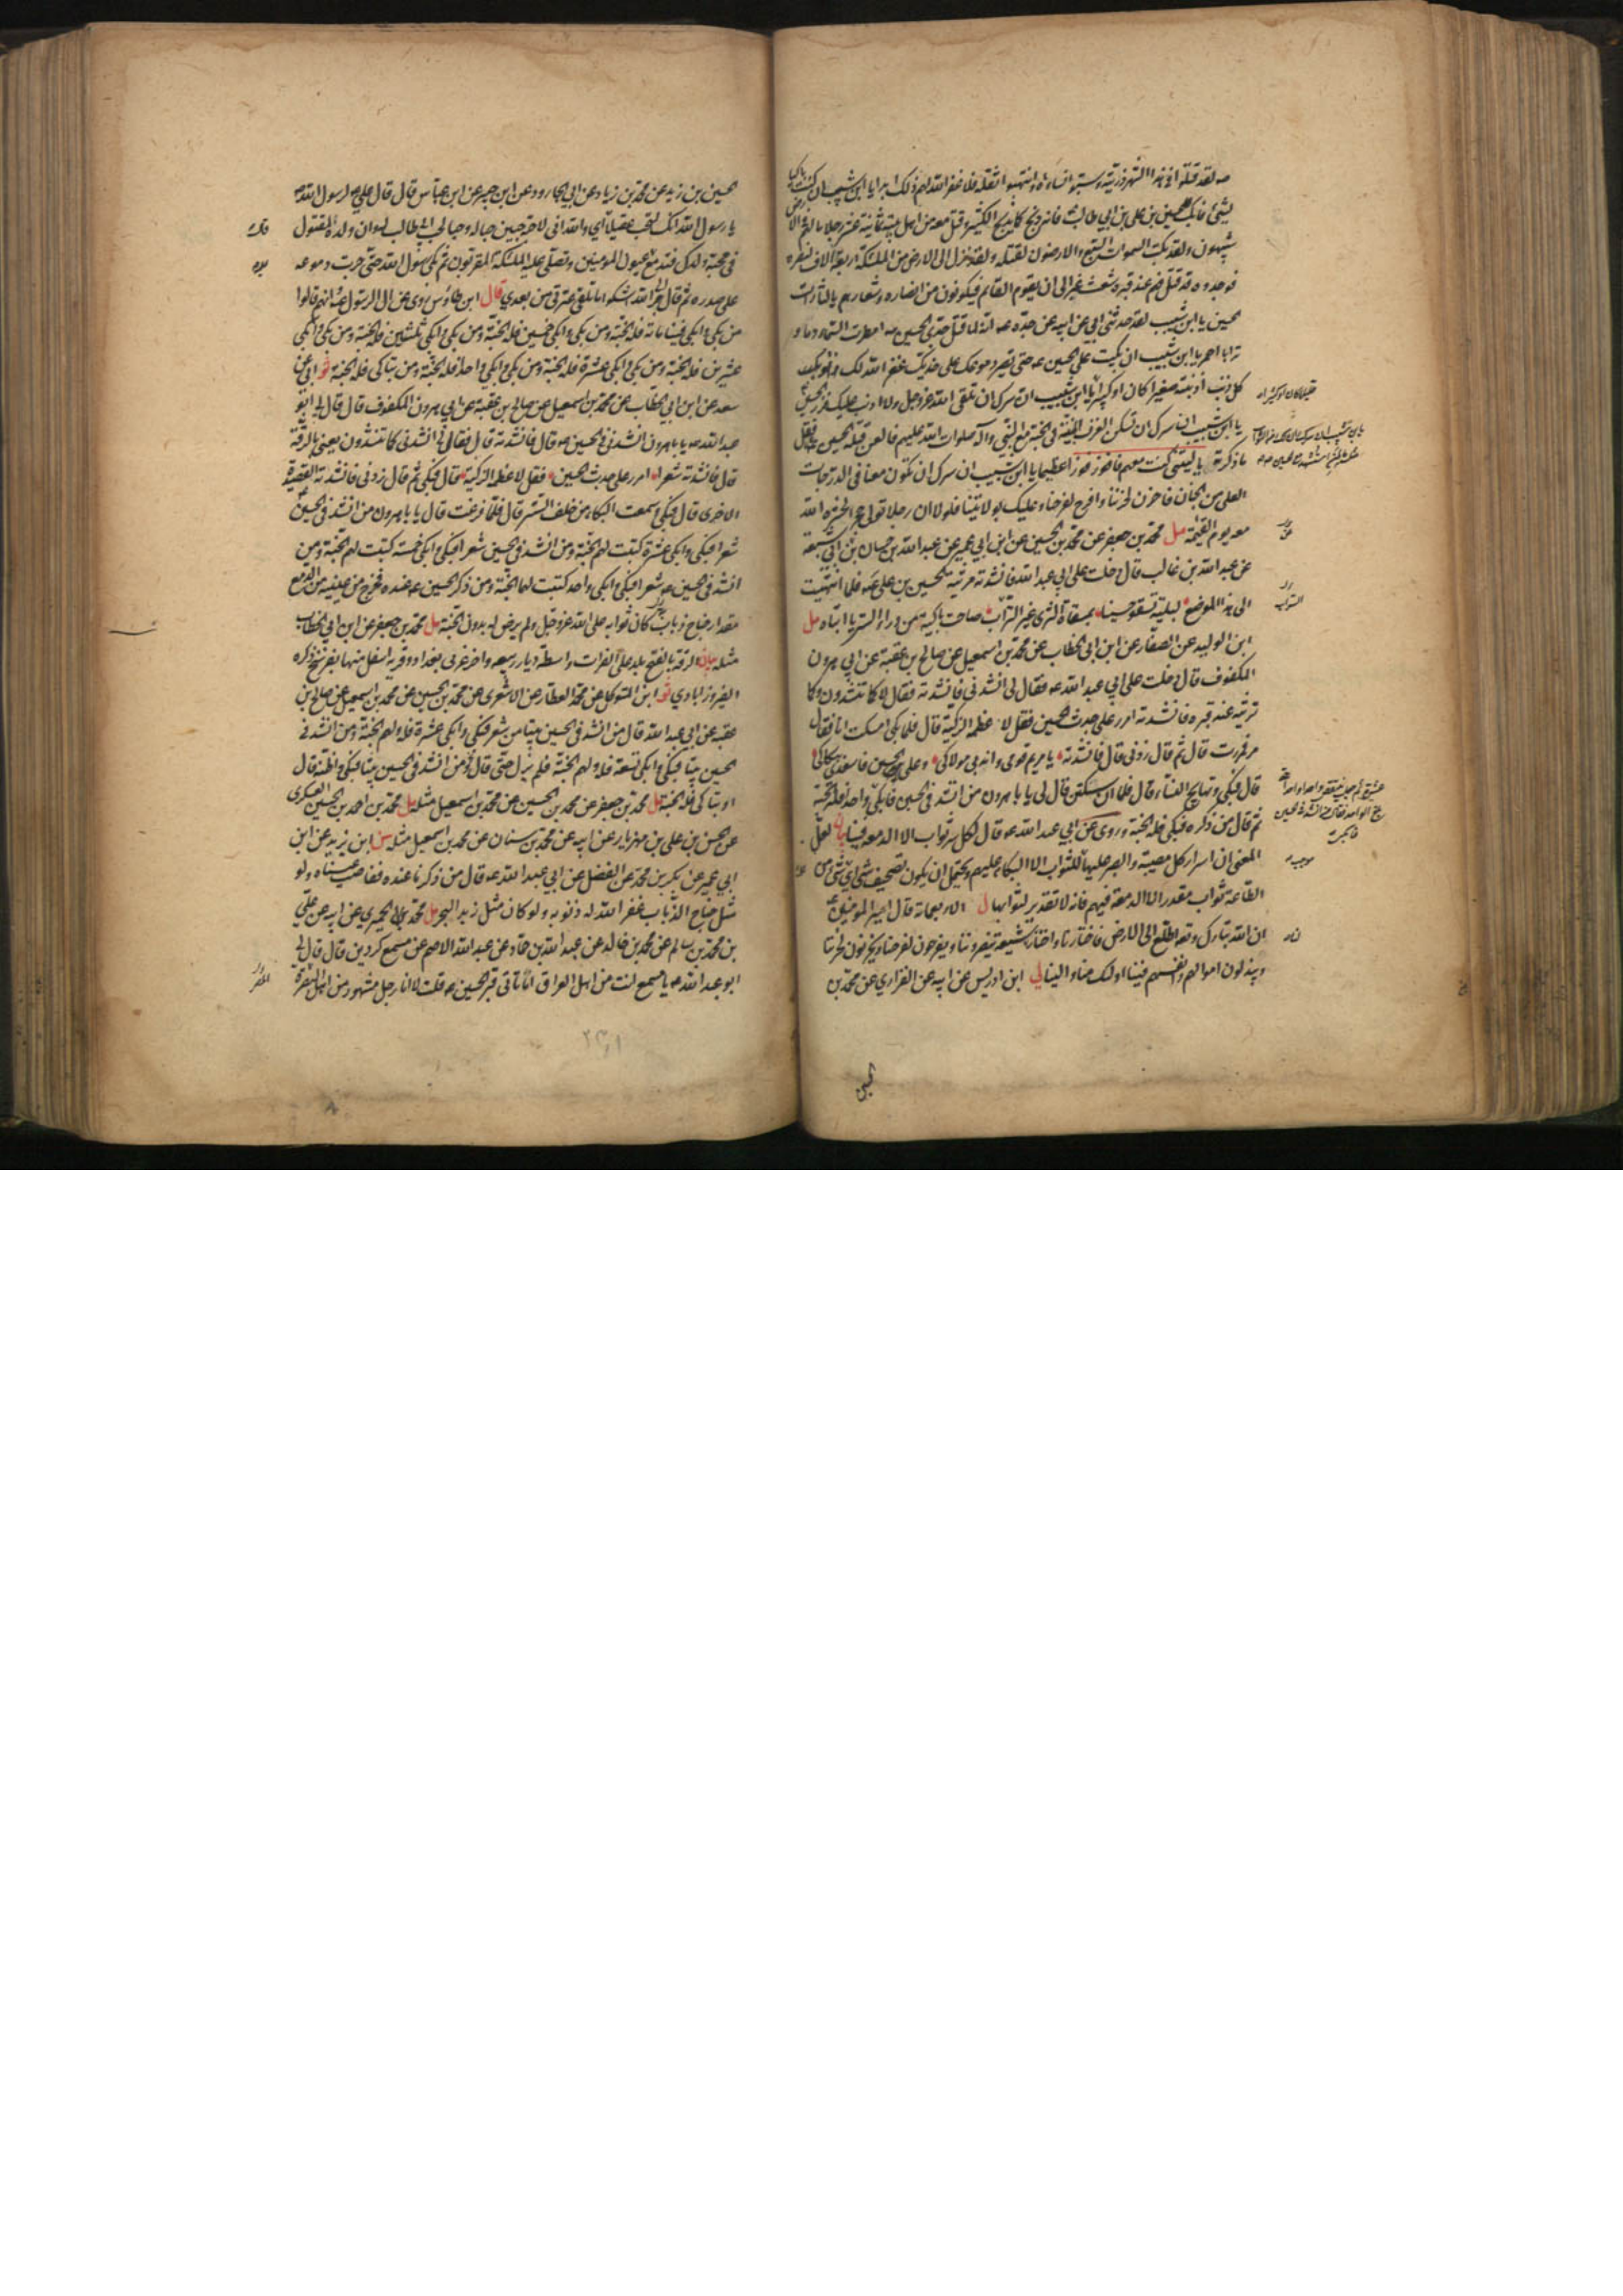 صه لقد قتلوا فى هذا الشهر ذريته وسبوا نساءه وانتهبوا ثقله فلا غفر الله لهم ذلك ابدا يا ابن شبيب ان كنت باكيا
لشئ فابك للحسين بن على بن ابي طالب فانه ذبح كما يذبح الكبش وقتل معه من اهل بيته ثمانية عشر رجلا ما لهم فى الارض
شبيهون ولقد بكت السموات السبع والارضون لقتله ولقد نزل الى الارض من الملئكة اربعة آلاف لنصره
فوجدوه قد قتل فهم عند قبره شعث غبر الى ان يقوم القائم فيكونون من انصاره وشعارهم يا لثارات
الحسين يا ابن شبيب لقد حدثنى ابي عن ابيه عن جده عه انه لما قتل جدى الحسين صه امطرت السماء دما و
ترابا احمر يا ابن شبيب ان بكيت على الحسين عه حتى تصير دموعك على خديك غفر الله لك
كل ذنب اذنبته صغيرا كان او كبيرا يا ابن شبيب ان سرك ان تلقى الله عز وجل ولا ذنب عليك فزر الحسين
قليلا كان او كثيرا
يا ابن شبيب ان سرك ان تسكن الغرف المبنية فى الجنة مع النبي وآله صلوات الله عليهم فالعن قتلة الحسين
ما ذكرته يا ليتنى كنت معهم فافوز فوزا عظيما يا ابن شبيب ان سرك ان تكون معنا فى الدرجات
العلى من الجنان فاحزن لحزننا وافرح لفرحنا وعليك بولايتنا فلو ان رجلا تولى حجرا لحشره الله
معه يوم القيمة مل محمد بن جعفر عن محمد بن الحسين عن ابن ابي عمير عن عبد الله بن حسان عن ابن ابي شعبة
عن عبد الله بن غالب قال دخلت على ابي عبد الله فانشدته مرثية الحسين بن على عه فلما انتهيت
الى هذا الموضع لبلية تسقو حسينا بمسقاة الثرى غير التراب صاحت باكية من وراء الستر يا ابتاه مل
ابن الوليد عن الصفار عن ابن ابى الخطاب عن محمد بن اسمعيل عن صالح بن عقبة عن ابي هرون
المكفوف قال دخلت على ابي عبد الله عه فقال لى انشدنى فانشدته فقال لا كما تنشدون وكما
ترثيه عند قبره فانشدته امرر على جدث الحسين فقل لاعظمه الزكية قال فلما بكى امسكت انا فقال
مر فمررت قال ثم قال زدنى قال فانشدته يا مريم قومى واندبى مولاكى وعلى الحسين فاسعدى ببكاكى
قال فبكى وتهايج النساء قال فلما ان سكتن قال لى يا با هرون من انشد فى الحسين فابكى
ثم قال من ذكره فبكى فله الجنة وروى عن ابي عبد الله عه قال لكل سر ثواب الا الدمعة فينا بيان لعل
المعنى ان اسرار كل مصيبة والصبر عليها للثواب الا البكاء عليهم ويحتمل ان يكون تصحيف شئ اى شئ من
الطاعة ثواب مقدر الا الدمعة فيهم فانه لا تقدير لثوابها ل الاربعمائة قال امير المؤمنين عه
ان الله تبارك وتعه اطلع الى الارض فاختارنا واختار لنا شيعة ينصروننا ويفرحون لفرحنا ويحزنون لحزننا
ويبذلون اموالهم وانفسهم فينا اولئك منا والينا لى ابن ادريس عن ابيه عن الفزارى عن محمد بن
الحسين بن زيد عن محمد بن زياد عن ابي الجارود عن ابن جبير عن ابن عباس قال قال على صه لرسول الله صه
يا رسول الله انك لتحب عقيلا قال اى والله انى لاحبه حبين حبا له وحبا لحب ابي طالب له وان ولده لمقتول
فى محبة ولدك فتدمع عليه عيون المؤمنين وتصلى عليه الملئكة المقربون ثم بكى رسول الله حتى جرت دموعه
على صدره ثم قال الى الله اشكو ما تلقى عترتى من بعدى قال ابن طاوس روى عن آل الرسول عه انهم قالوا
من بكى وابكى فينا مائة فله الجنة ومن بكى وابكى خمسين فله الجنة ومن بكى وابكى ثلثين فله الجنة ومن بكى وابكى
عشرين فله الجنة ومن بكى وابكى عشرة فله الجنة ومن بكى وابكى واحدا فله الجنة ومن تباكى فله الجنة ثو ابي عن
سعد عن ابن ابي الخطاب عن محمد بن اسمعيل عن صالح بن عقبة عن ابي هرون المكفوف قال قال لى ابو
عبد الله عه يا با هرون انشدنى فى الحسين عه قال فانشدته قال فقال لى انشدنى كما تنشدون يعنى بالرقة
قال فانشدته شعر امرر على جدث الحسين فقل لاعظمه الزكية قال فبكى ثم قال زدنى فانشدته القصيدة
الاخرى قال فبكى وسمعت البكاء من خلف الستر قال فلما فرغت قال يا با هرون من انشد فى الحسين
شعرا فبكى وابكى عشرة كتبت لهم الجنة ومن انشد فى الحسين شعرا فبكى وابكى خمسة كتبت لهم الجنة ومن
انشد فى الحسين عه شعرا فبكى وابكى واحدا كتبت لهما الجنة ومن ذكر الحسين عه عنده فخرج من عينيه من الدمع
مقدار جناح ذباب كان ثوابه على الله عز وجل ولم يرض له بدون الجنة مل محمد بن جعفر عن ابن ابي الخطاب
مثله بيان الرقة بالفتح بلد على الفرات واسطة ديار ربيعه واخر غربى بغداد وقرية اسفل منها بفرسخ ذكره
الفيروزابادى ثو ابن المتوكل عن محمد العطار عن الاشعرى عن محمد بن الحسين عن محمد بن اسمعيل عن صالح بن
عقبة عن ابي عبد الله قال من انشد فى الحسين بيتا من شعر فبكى وابكى عشرة فله ولهم الجنة ومن انشد فى
الحسين بيتا فبكى وابكى تسعة فله ولهم الجنة فلم يزل حتى قال ومن انشد فى الحسين بيتا فبكى واظنه قال
او تباكى فله الجنة مل محمد بن جعفر عن محمد بن الحسين عن محمد بن اسمعيل مثله مل محمد بن احمد بن الحسين العسكرى
عن الحسن بن على بن مهزيار عن ابيه عن محمد بن سنان عن محمد بن اسمعيل مثله سن ابن يزيد عن ابن
ابى عمير عن بكر بن محمد عن الفضل عن ابي عبد الله عه قال من ذكرنا عنده ففاضت عيناه ولو
مثل جناح الذباب غفر الله له ذنوبه ولو كان مثل زبد البحر مل محمد الحميرى عن ابيه عن على
بن محمد بن سالم عن محمد بن خالد عن عبد الله بن حماد عن عبد الله الاصم عن مسمع كردين قال قال لى
ابو عبد الله عه يا مسمع انت من اهل العراق اما تأتى قبر الحسين عه قلت لا انا رجل مشهور من اهل البصرة